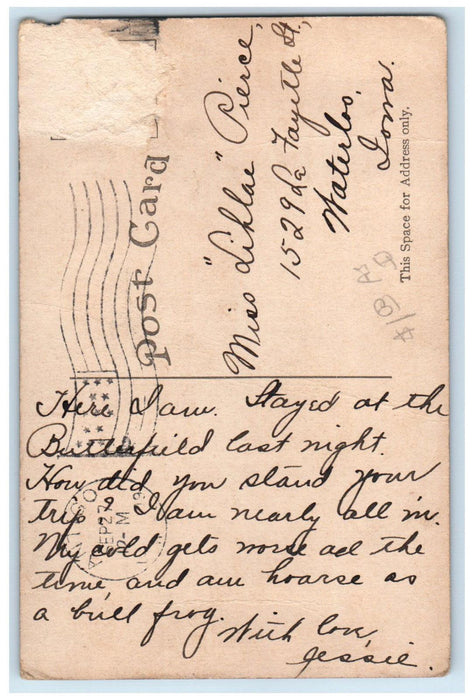 Post Card
Miss "Lihlae" Pierce,
1529 La Fayette St.,
Waterloo,
Iowa.
This Space for Address only.
SEP 27
2-PM
Here I am. Stayed at the
Butterfield last night.
How did you stand your
trip I am nearly all in.
My cold gets worse all the
time and am hoarse as
a bull frog.
With love,
Jessie.